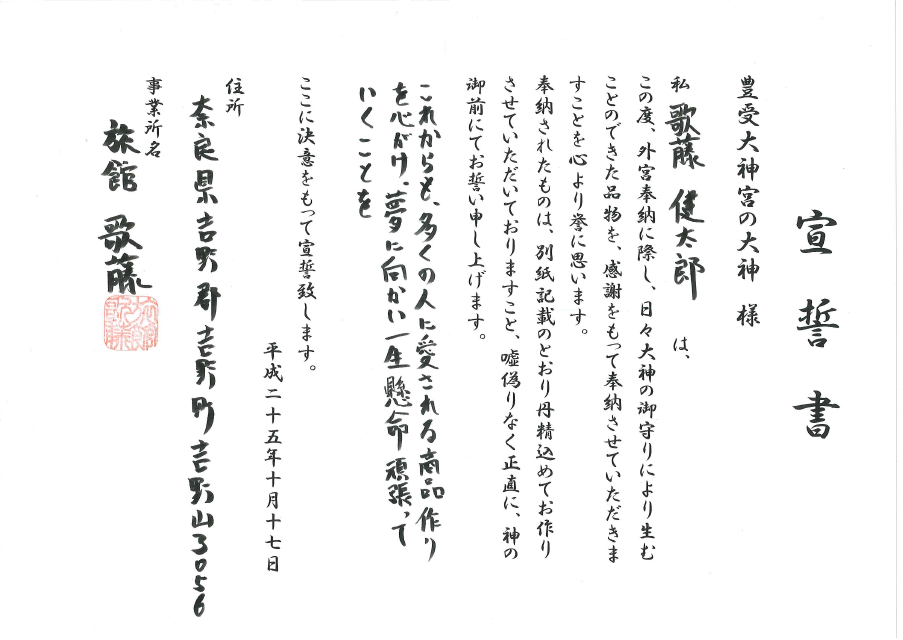 宣誓書
豊受大神宮の大神 様
私 歌藤 健太郎 は、
この度、外宮奉納に際し、日々大神の御守りにより生む
ことのできた品物を、感謝をもって奉納させていただきま
すことを心より誉に思います。
奉納されたものは、別紙記載のとおり丹精込めてお作り
させていただいておりますこと、嘘偽りなく正直に、神の
御前にてお誓い申し上げます。
これからも、多くの人に愛される商品作り
を心がけ、夢に向かい一生懸命頑張って
いくことを
ここに決意をもって宣誓致します。
平成二十五年十月十七日
住所
奈良県吉野郡吉野町吉野山3056
事業所名
旅館 歌藤